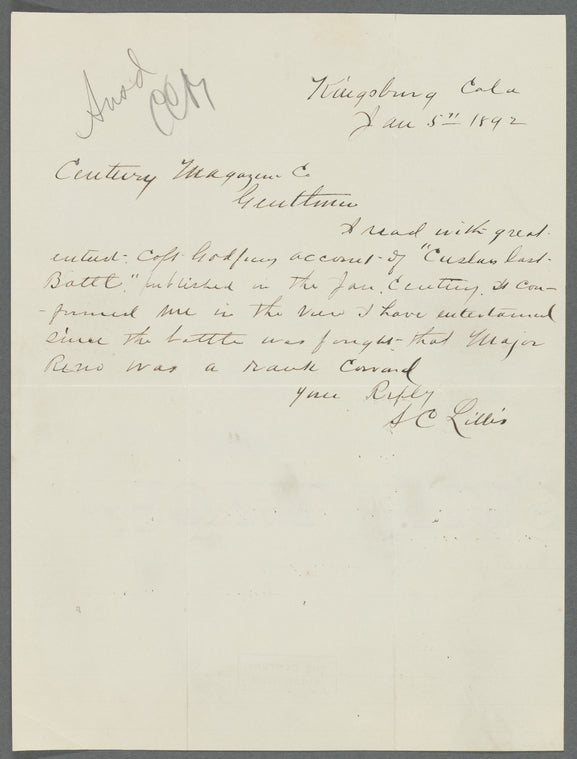 Ans'd
CCB
Kingsburg Cala
Jan 5th 1892
Century Magazine Co
Gentlmen
I read with great
interest Capt Godfreys account of "Custers last
Battle," published in the Jan. Century. It con-
-firmed me in the view I have entertained
since the battle was fought that Major
Reno was a rank Coward
Your Respfly
S C Lillis